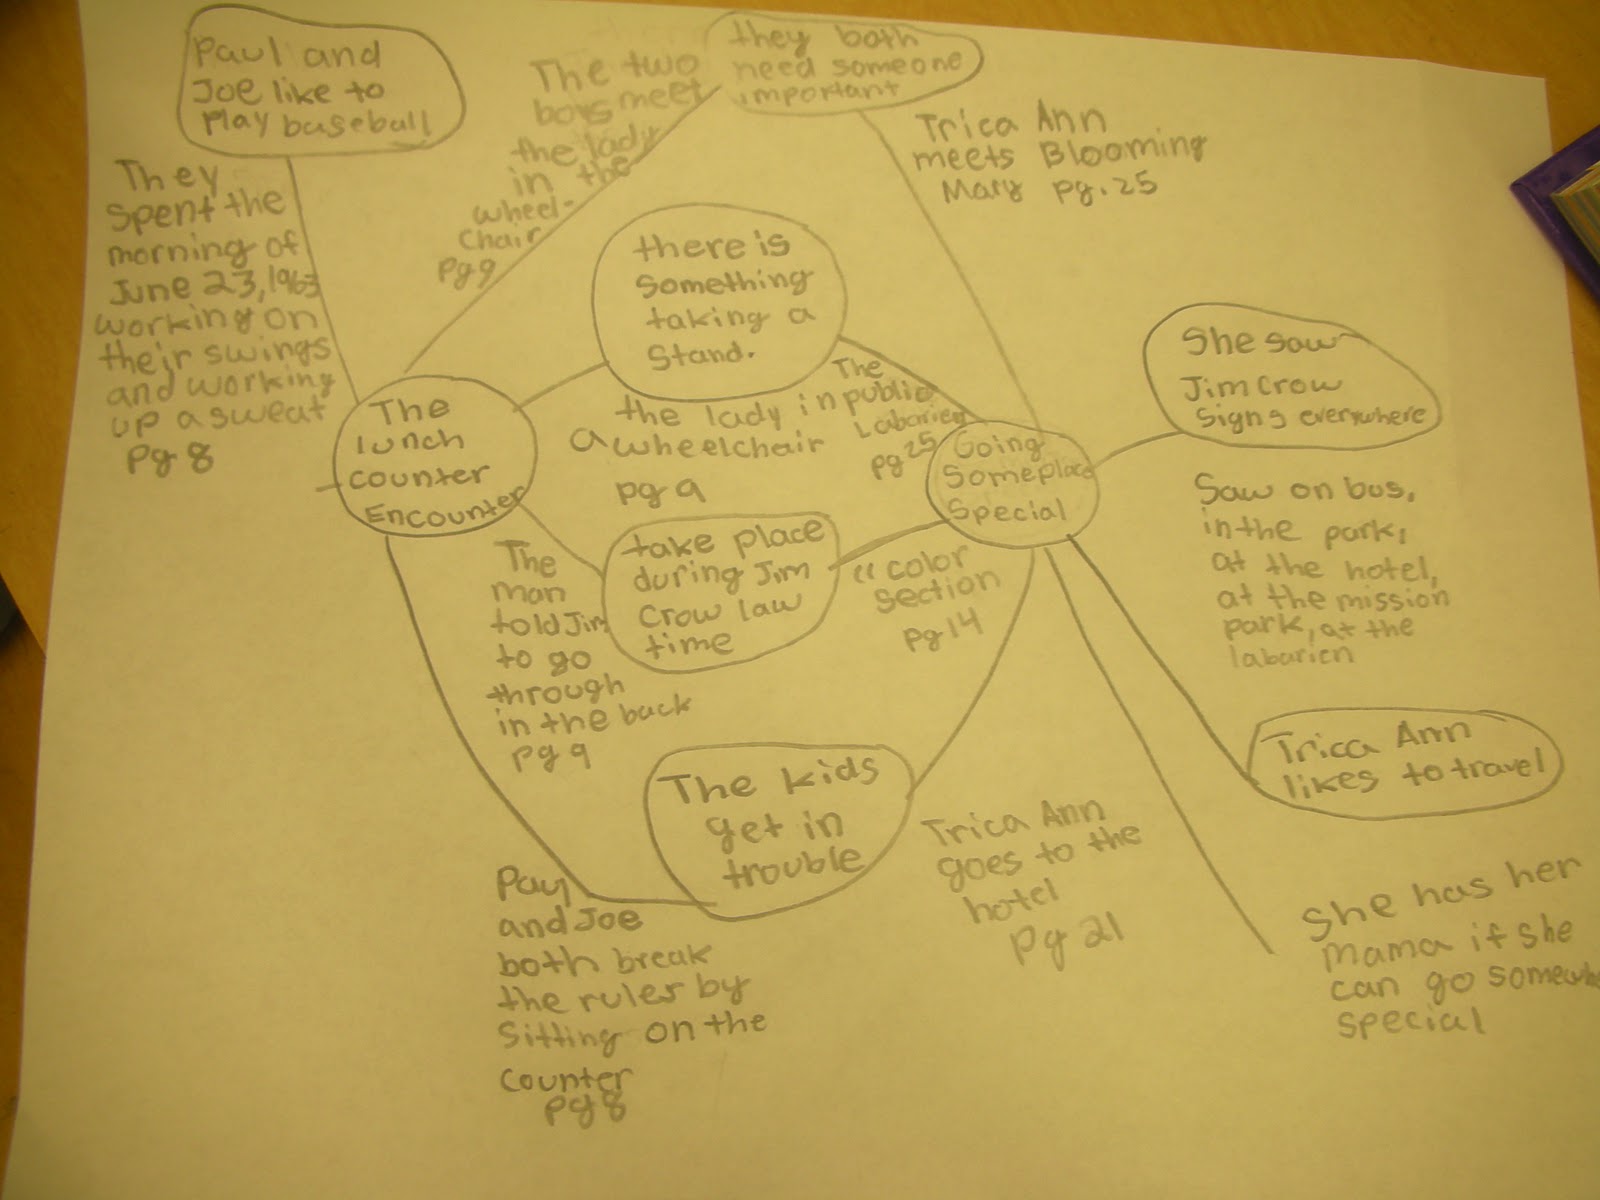 Paul and
Joe like to
Play baseball
They
spent the
morning of
June 23, 1963
working on
their swings
and working
up a sweat
pg 8
The two
boys meet
the lady
in the
wheel-
chair
pg 9
they both
need someone
important
Trica Ann
meets Blooming
Mary pg. 25
there is
something
taking a
stand.
the lady in
a wheelchair
pg 9
The
public
Labarien
pg 25
The
lunch
counter
Encounter
Going
Someplace
Special
She saw
Jim Crow
Signs everywhere
Saw on bus,
in the park,
at the hotel,
at the mission
park, at the
labarien
take place
during Jim
Crow law
time
The
man
told Jim
to go
through
in the back
pg 9
"color
section
pg 14
The kids
get in
trouble
Paul
and Joe
both break
the rules by
sitting on the
counter
pg 8
Trica Ann
goes to the
hotel
pg 21
Trica Ann
likes to travel
She has her
mama if she
can go
special